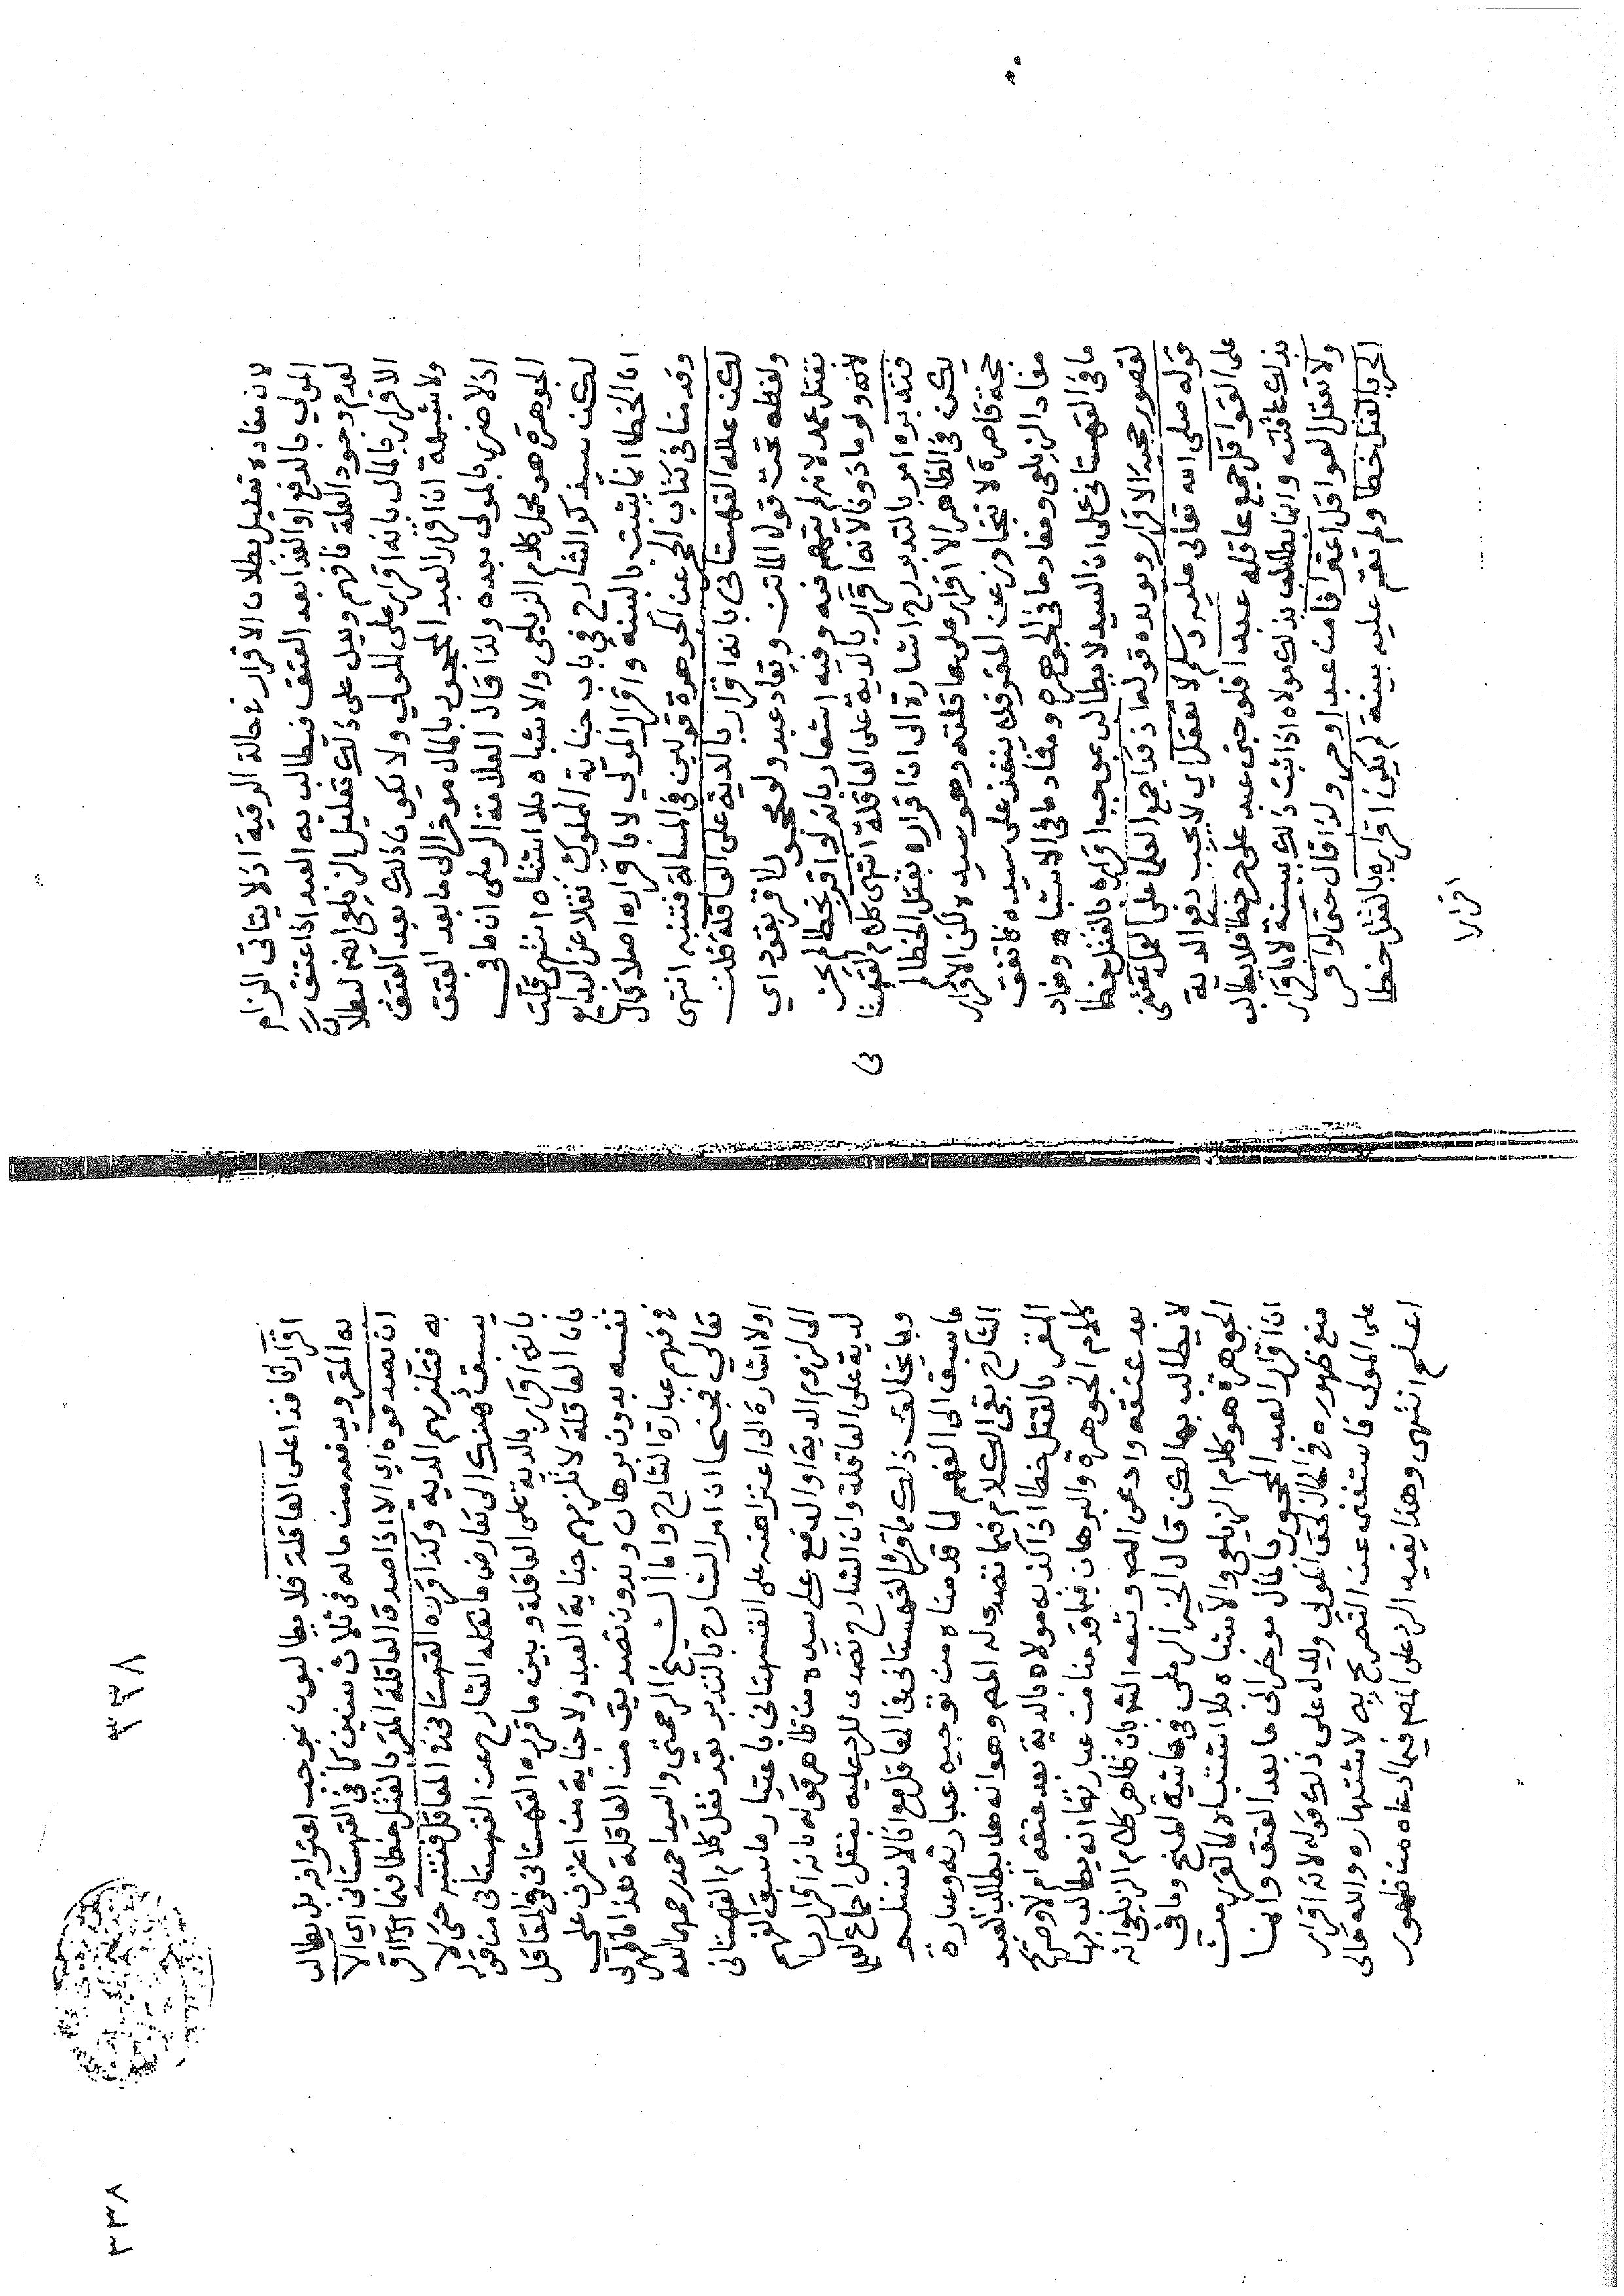 لان مفاده تعليل بطلان الاقرار في حالة الرقية اذ لا يتاتى الزام
المولى بالدفع او الفدا بعد العتق فيطالب به العبد اذا عتق
لعدم وجود العلة فافهم ويدل على ذلك تعليل الزيلعي ايضا لبطلان
الاقرار بالمال بانه اقرار على المولى ولا يكون ذلك بعد العتق
ولا شبهة ان اقرار العبد المحجور بالمال موخر الى ما بعد العتق
اذ لا ضرر بالمولى بعده ولذا قال العلامة الرملي ان ما في
الجوهرة هو محمل كلام الزيلعي والاشباه بلا اشتباه انتهى قلت
لكن سيذكر الشارح في باب جناية المملوك نقلا عن البدايع
ان الخطا انما يثبت بالبينة واقرار المولى لا باقراره اصلا قال
وقدمنا في كتاب الحجر عن الجوهرة قولين في المسالة فتنبه انتهى
لكن علله القهستاني بانه اقرار بالدية على العاقلة قلت
ولفظه تحت قول الماتن ويقاد عبد ولو محجورا اقر بقود اي
بقتل عمد لانه لم يتهم فيه وفيه اشعار بانه لو اقر بخطا لم يجز
لانه ولو ماذونا لانه اقرار بالدية على العاقلة انتهى كلام القهستا
ني
فتدبره امر بالتدبر اشارة الى ان اقراره بقتل الخطا لم
يكن في الظاهر الا اقرار على عاقلته وهو سيده لكن الاقرار
حجة قاصرة لا تتجاوز عن المقر فلم ينفذ على سيده فاتفق
مفاد الزيلعي ومفاد ما في الجوهرة ومفاد ما في الاشباه ومفاد
ما في القهستاني على ان السيد لا يطالب بموجب اقراره بالقتل خطا
لقصور حجية الاقرار ويويده قولهم اذ قد اجمع العلما على العمل بمقتضى
قوله صلى الله تعالى عليه وسلم لا تعقل اي لا يجب دفع الدية
على العواقل جمع عاقلة عبدا فلو جنى عبد على حر خطا فلا يطالب
بذلك عاقلته وانما يطالب بذلك مولاه اذا ثبت ذلك ببينة لا باقرار
ولا تعقل العواقل اعترافا من عبد او حر ولذا قال حتى لو اقر
الحر بالقتل خطا ولم تقم عليه بينة لم يكن اقراره بالقتل خطا
اقرارا
اقرارنا فذا على العاقلة فلا يطالبون بموجب اعترافه بل يطالب
به المقر ويدفعه من ماله في ثلاث سنين كما في القهستاني اي الا
ان تصدقوه اي الا اذا صدق العاقلة المقر بالقتل خطا فيما اقر
به فتلزمهم الدية وكذا قرره القهستاني في المعاقل فتنبه حتى لا
يسبق ذهنك الى تعارض ما نقله الشارح عن القهستاني من قوله
بانه اقرار بالدية على العاقلة وبين ما قرره القهستاني في المعاقل
بان العاقلة لا تلزمهم جناية العبد ولا جناية من اعترف على
نفسه بدون برهان وبدون تصديق من العاقلة هذا ما ظهر لي
في فهم عبارة الشارح واما الشيخ الرحمتي والسيد احمد رحمهما الله
تعالى فجنحا ان امر الشارح بالتدبر بعد نقل كلام القهستاني
اولا اشارة الى اعتراضه على القهستاني باعتبار ما سبق الفهم
الى لزوم الدية او الدفع على سيده من ظاهر قوله بانه اقرار
لدية على العاقلة وان الشارح تصدى للرد عليه بنقل اجماع العلما
وبما يخالف ذلك مما قرره القهستاني في المعاقل مع انا لا نسلم
ما سبق الى الفهم لما قدمناه من توجيه عبارته وعبارة
الشارح بقي الكلام فيما تصدى له المص وهو انه هل يطالب العبد
المقر بالقتل خطا اذا كذبه مولاه بالدية بعد عتقه ام لا وصريح
كلام الجوهرة والبرهان فيما قدمنا من عبارتهما انه يطالب بها
بعد عتقه وادعى المص وتبعه الش بان ظاهر كلام الزيلعي انه
لا يطالب بها لكن قال الخير الرملي في حاشية المنح وما في
الجوهرة هو كلام الزيلعي والاشباه بلا اشتباه لما تقرر من
ان اقرار العبد المحجور بالمال موخر الى ما بعد العتق وانما
منع ظهوره في الحال لحق المولى ويدل على ذلك قوله لانه اقرار
على المولى فاستغنى عن التصريح به لاشتهاره والله تعالى
اعلم انتهى وهذا يفيد الرد على المص فيما ادعاه من ظهور
٣٣٨
٣٣٨